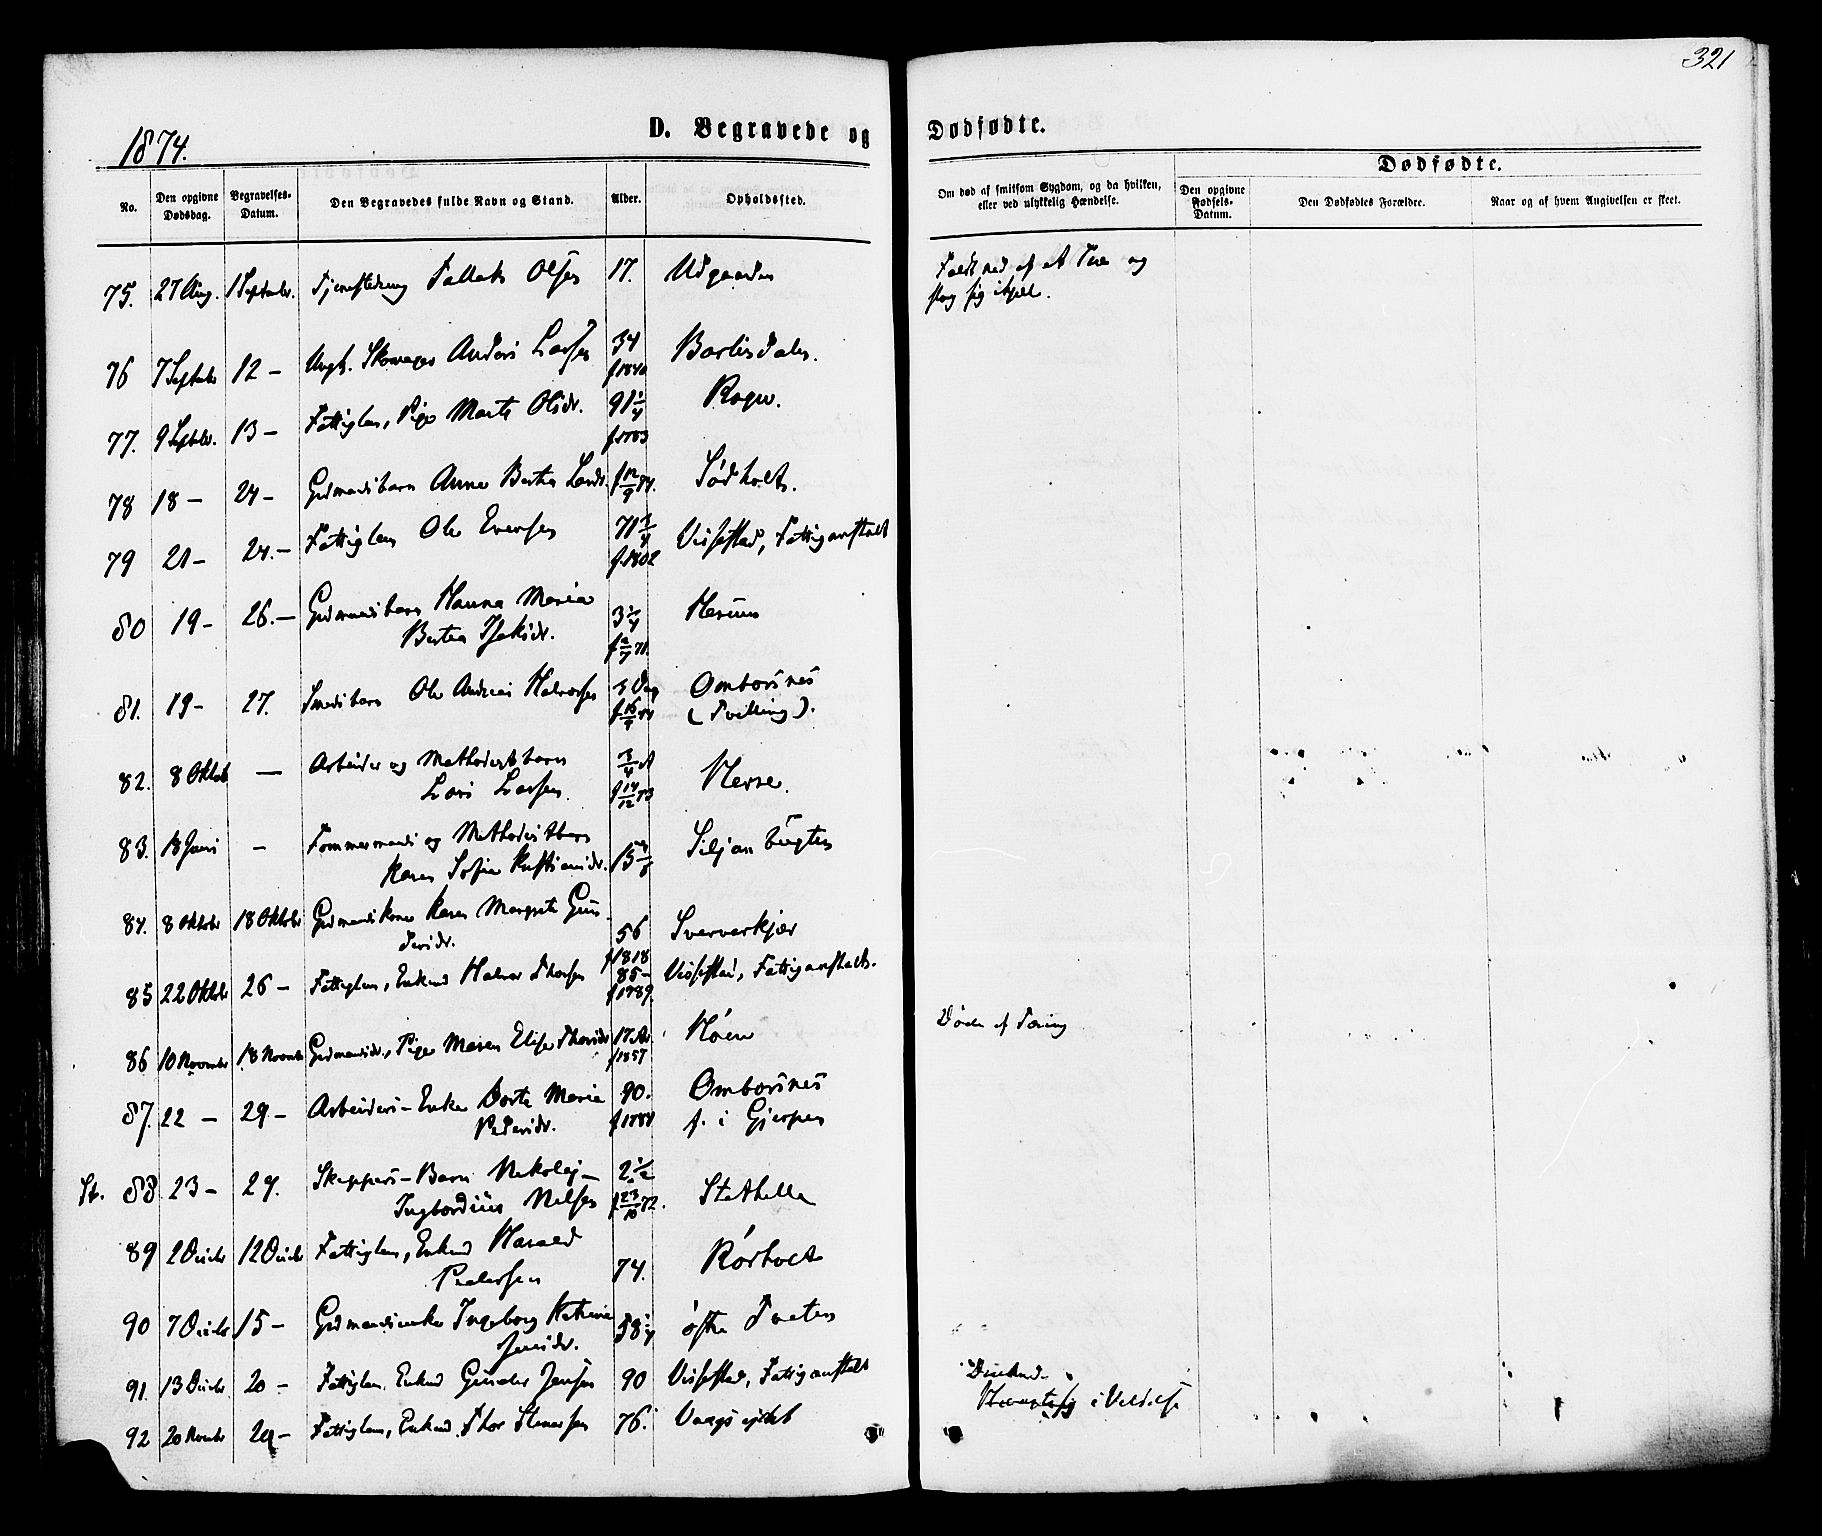 321
1874.
D. Begravede og Dødfødte.
Dødfødte.
No.
Den opgivne Dødsdag.
Begravelses-Datum.
Den Begravedes fulde Navn og Stand.
Alder.
Opholdssted.
Om død af smitsom Sygdom, og da hvilken, eller ved ulykkelig Hændelse.
Den opgivne Fødsels-Datum.
Den Dødfødtes Forældre.
Naar og af hvem Angivelsen er skeet.
75. 27 Aug. 1 Septbr. Tjenestedreng Tallak Olsen 17. Udgaarden
Faldt ned af et Træ og
slog sig ihjel.
76 7 Septbr 12 – Ungk. Anders Larsen 34 f. 1840
77. 9 Septbr. 13 – Fattiglem, Pige Marte Olsdr. 91 1/4 f. 1783
78 18 – 24 – Gdmandsbarn Anne Bertea Larsdr. f 12/9 74. Sødholt.
79 21 – 24. – Fattiglem Ole Eversen 71 3/4 f. 1802 Vissestad, Fattiganstalt
80 19 – 26. – Gdmandsbarn Hanna Maria
Bertea Isaksdr. 3 1/4 Herum
81. 19 – 27. Smedsbarn Ole Andreas Halvorsen 3 Dag f. 16/9 74 Omborsnes
(Tvilling).
82. 8 Oktob — Arbeider og Methodistbarn
Lars Larsen. 3/4 A f 14/12 73 Herre.
83. 18 Juni – Tømmermands og Methodistbarn
Karen Sofie Kristiansdr. Siljan bugten
84. 8 Oktobr 18 Oktobr Gdmandskone Karen Margrete Gun-
dersdr. 56 f 1818 Sververkjær
85 22 Oktobr 26 – Fattiglem, Enkmd Halvor Thorsen 85 – f 1789. Vissestad, Fattiganstalt.
86 10 Novembr 18 Novmbr Gdmandsdr., Pige Maren Elise Thorsdr 17 Ar. f 1857 Høen
Døde af Tæring
87. 22 – 29 – Arbeiders-Enke Dorte Maria
Pedersdr. 90. f 1784 Omborsnes
f. i Gjerpen
St. 88 23 – 29. Skippers-Barn Nikolaj
Ingbordius Nilsen 2 1/2 f 23/10 72. Stathelle
89 2 Decbr 12 Decbr Fattiglem, Enkmd Harald
Pedersen 74. Rørholt
90 7 Decbr 15 – Gdmandsenke Ingeborg Katrine
Jensdr. østre Tveten
91. 13 Decbr 20 – Fattiglem. Enkmd Gunder Jensen 90 Vissestad, Fattiganstalt
92 20 Novmbr 29 – Fattiglem, Enkmd. Thor Stenersen 76.